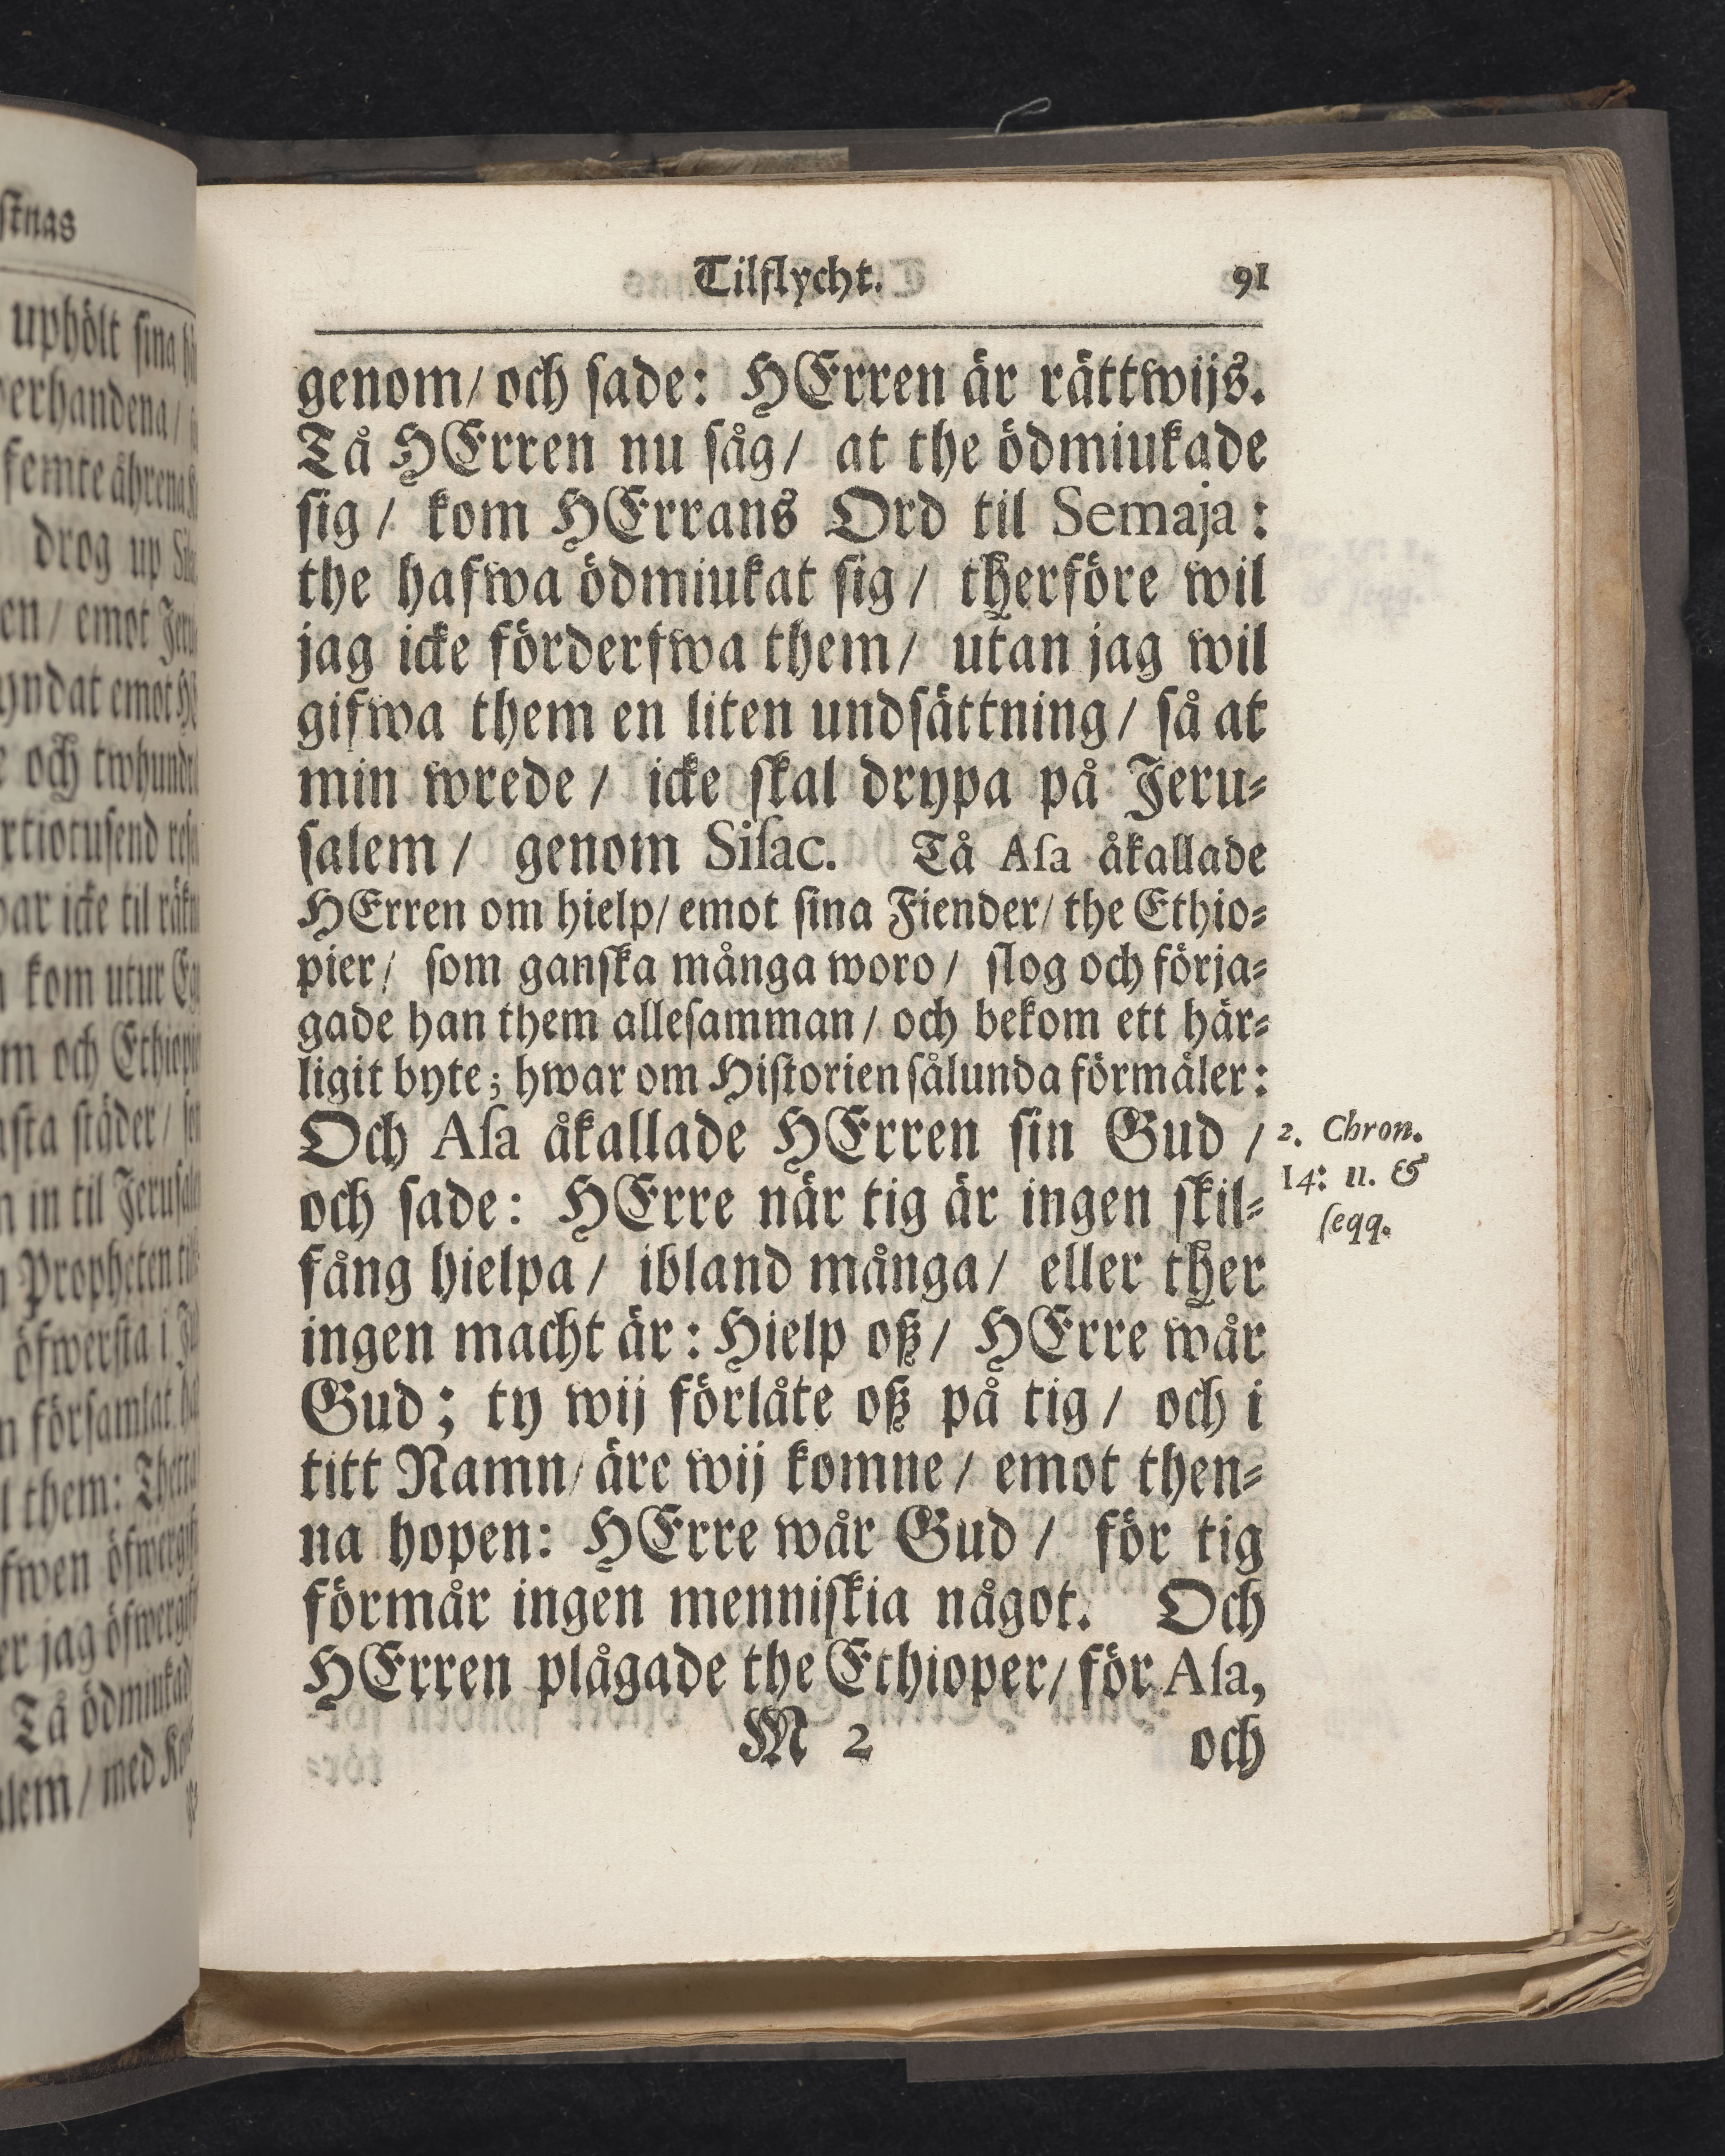 ſknas
uphölt ſina
erhandena/
femte åhrena
drog up
en/ emot
yndat emot
och twhundr
rtiotuſend
ar icke til
kom utur
m och Ethiopi
ſta ſtäder/
in til Jeruſal
Propheten
öfwerſta i
förſamlat
them: Thetta
fwen
jag
Tå ödmiukad
lem/ med
Tilflycht. 91
genom/ och ſade: HErren är rättwijs.
Tå HErren nu ſåg/ at the ödmiukade
ſig/ kom HErrans Ord til Semaja:
the hafwa ödmiukat ſig/ therföre wil
jag icke förderfwa them/ utan jag wil
gifwa them en liten undſättning/ ſå at
min wrede/ icke ſkal drypa på Jeru⸗
ſalem/ genom Siſac. Tå Aſa åkallade
HErren om hielp/ emot ſina Fiender/ the Ethio⸗
pier/ ſom ganſka många woro/ ſlog och förja⸗
gade han them alleſamman/ och bekom ett här⸗
ligit byte; hwar om Hiſtorien ſålunda förmåler:
Och Aſa åkallade HErren ſin Gud /
och ſade: HErre når tig är ingen ſkil⸗
fång hielpa/ ibland många/ eller ther
ingen macht är: Hielp oß/ HErre wår
Gud; ty wij förlåte oß på tig/ och i
titt Namn/ äre wij komne/ emot then⸗
na hopen: HErre wår Gud / för tig
förmår ingen menniſkia något. Och
HErren plågade the Ethioper/ för Aſa,
M 2 och
2. Chron.
14: 11. &
ſeqq.